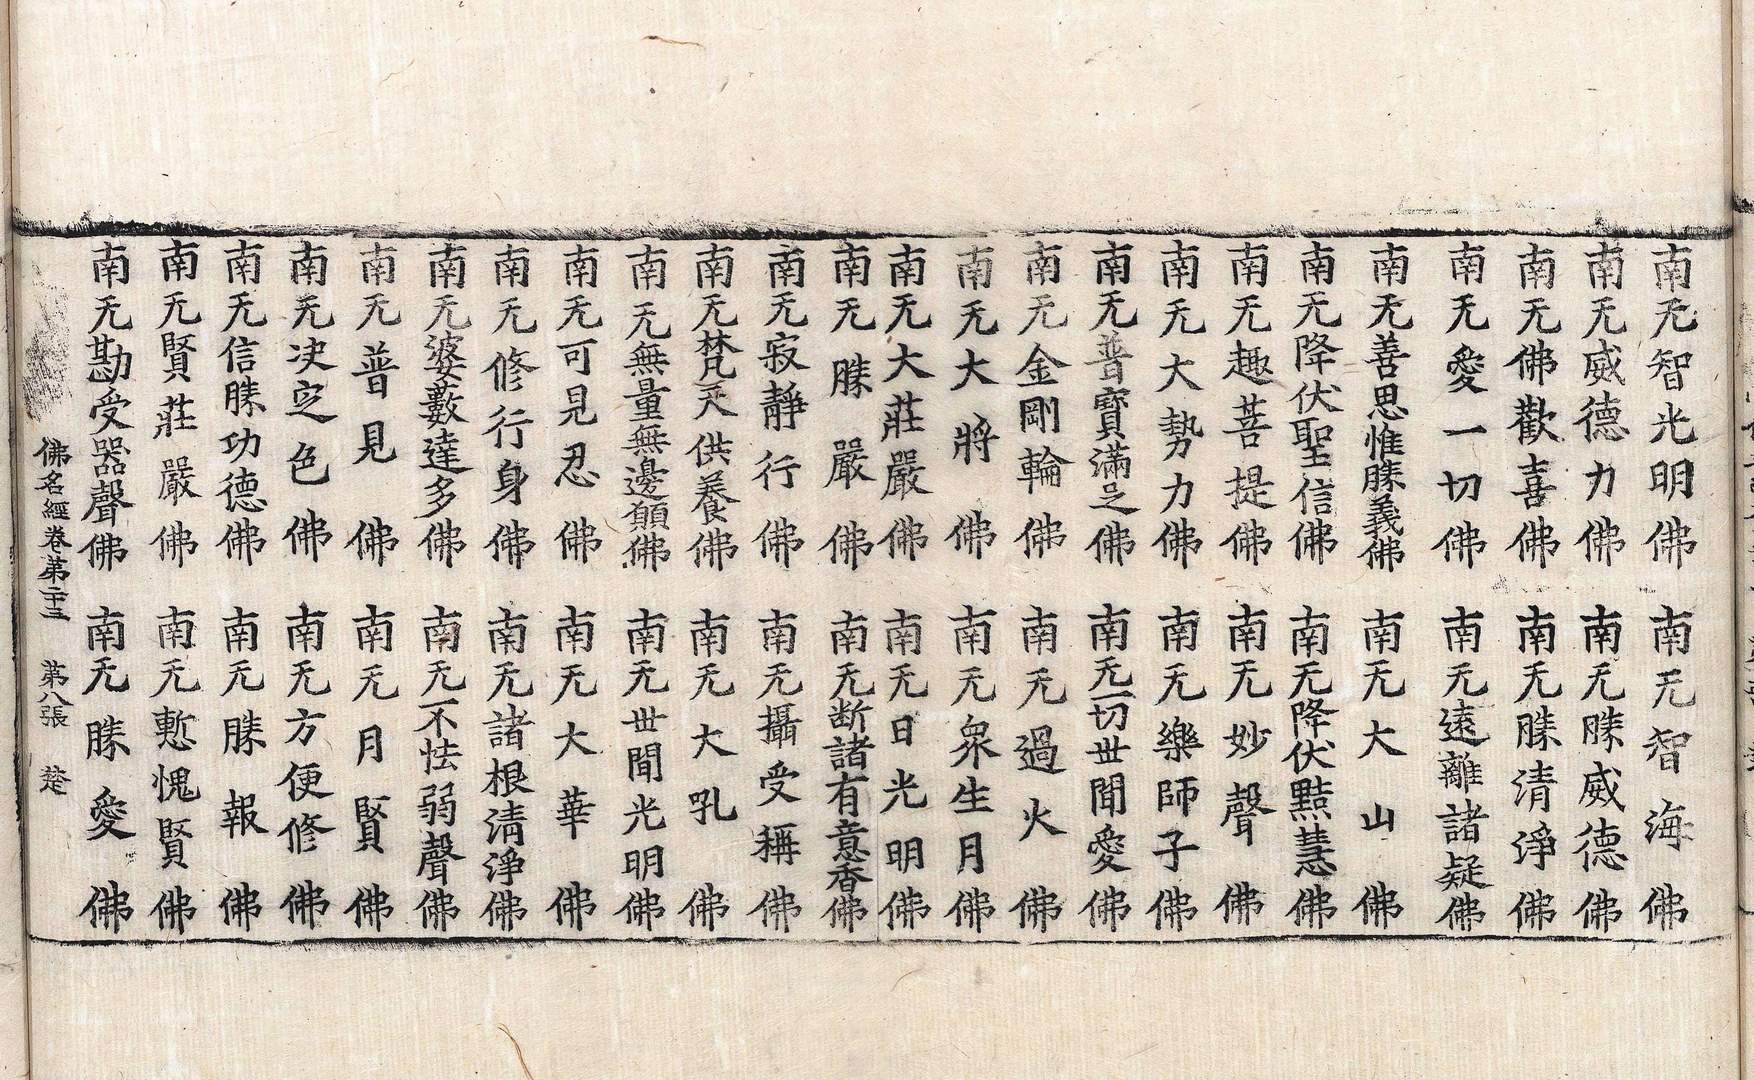 南无智光明佛　南无智海佛
南无威德力佛　南无勝威德佛
南无佛歡喜佛　南无勝清淨佛
南无愛一切佛　南无遠離諸疑佛
南无善思惟勝義佛　南无大山佛
南无降伏聖信佛　南无降伏黠慧佛
南无趣菩提佛　南无妙聲佛
南无大勢力佛　南无樂師子佛
南无普寶滿足佛　南无一切世閒愛佛
南无金剛輪佛　南无過火佛
南无大將佛　南无眾生月佛
南无大莊嚴佛　南无日光明佛
南无勝嚴佛　南无断諸有意香佛
南无寂靜行佛　南无攝受稱佛
南无梵天供養佛　南无大吼佛
南无無量無邊願佛　南无世閒光明佛
南无可見忍佛　南无大華佛
南无修行身佛　南无諸根清淨佛
南无婆藪達多佛　南无不怯弱聲佛
南无普見佛　南无月賢佛
南无决定色佛　南无方便修佛
南无信勝功德佛　南无勝報佛
南无賢莊嚴佛　南无慙愧賢佛
南无勘受器聲佛　南无勝愛佛
佛名經卷第二十三　第八張　楚